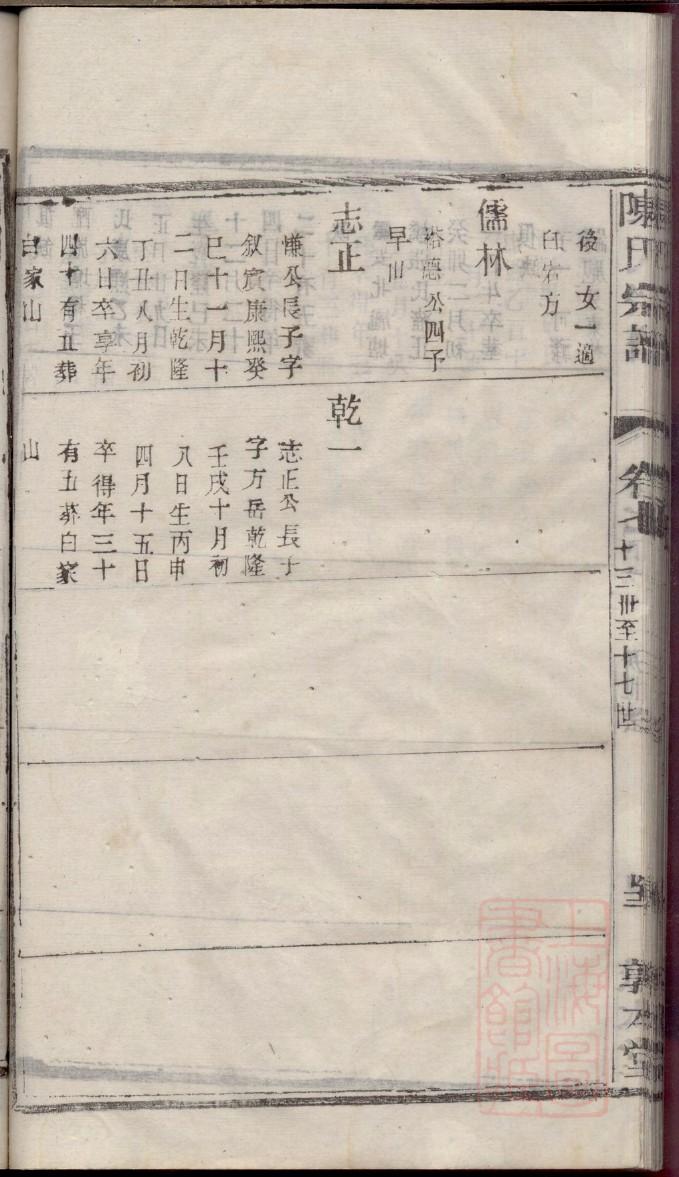 陳氏宗譜
卷七
十三世至十七世
敦本堂
後 女一適
白岩方
儒林
裕德公四子
早卅
志正
慊公長子字
叙賓康熙癸
巳十一月十
二日生乾隆
丁丑八月初
六日卒享年
四十有五葬
白家山
乾一
志正公長子
字方岳乾隆
壬戌十月初
八日生丙申
四月十五日
卒得年三十
有五葬白家
山
上海圖書館藏